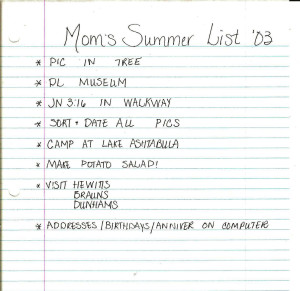 Mom's Summer List '03
* PIC IN TREE
* DL MUSEUM
* JN 3:16 IN WALKWAY
* SORT + DATE ALL PICS
* CAMP AT LAKE ASHTABULA
* MAKE POTATO SALAD!
* VISIT HEWITTS
BRAUNS
DUNHAMS
* ADDRESSES/BIRTHDAYS/ANNIVER ON COMPUTER